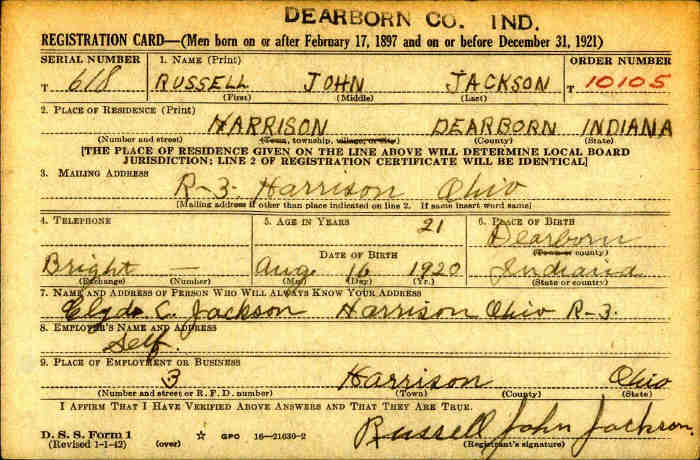 DEARBORN CO. IND.
REGISTRATION CARD—(Men born on or after February 17, 1897 and on or before December 31, 1921)
SERIAL NUMBER 1. NAME (Print) ORDER NUMBER
T 618 RUSSELL JOHN JACKSON T 10105
(First) (Middle) (Last)
2. PLACE OF RESIDENCE (Print)
HARRISON DEARBORN INDIANA
(Number and street) (Town, township, village, or city) (County) (State)
[THE PLACE OF RESIDENCE GIVEN ON THE LINE ABOVE WILL DETERMINE LOCAL BOARD
JURISDICTION; LINE 2 OF REGISTRATION CERTIFICATE WILL BE IDENTICAL]
3. MAILING ADDRESS
R-3- Harrison Ohio
[Mailing address if other than place indicated on line 2. If same insert word same]
4. TELEPHONE 5. AGE IN YEARS 6. PLACE OF BIRTH
21 Dearborn
(Town or county)
DATE OF BIRTH
Bright — Aug 16 1920 Indiana
(Exchange) (Number) (Mo.) (Day) (Yr.) (State or country)
7. NAME AND ADDRESS OF PERSON WHO WILL ALWAYS KNOW YOUR ADDRESS
Clyde C. Jackson Harrison Ohio R-3.
8. EMPLOYER'S NAME AND ADDRESS
Self.
9. PLACE OF EMPLOYMENT OR BUSINESS
3 Harrison Ohio
(Number and street or R. F. D. number) (Town) (County) (State)
I AFFIRM THAT I HAVE VERIFIED ABOVE ANSWERS AND THAT THEY ARE TRUE.
Russell John Jackson
D. S. S. Form 1
(Revised 1-1-42) (over) ☆ GPO 16—21630-2 (Registrant's signature)